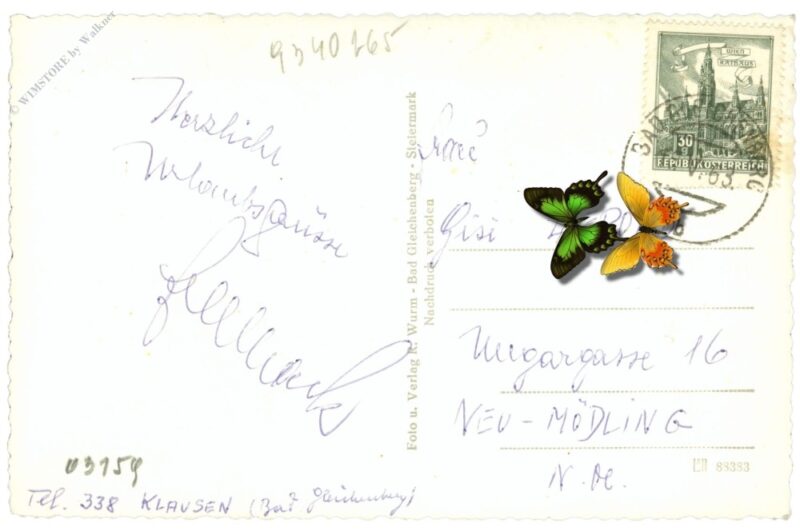 © WIMSTORE by Walkner
9340165
Herzliche
Urlaubsgrüsse
03159
Tel. 338 KLAUSEN (Bad Gleichenberg)
Foto u. Verlag R. Wurm - Bad Gleichenberg - Steiermark
Nachdruck verboten
WIEN
RATHAUS
30
REPUBLIK ÖSTERREICH
63
Gisi
Ungargasse 16
NEU-MÖDLING
N.Ö.
88383